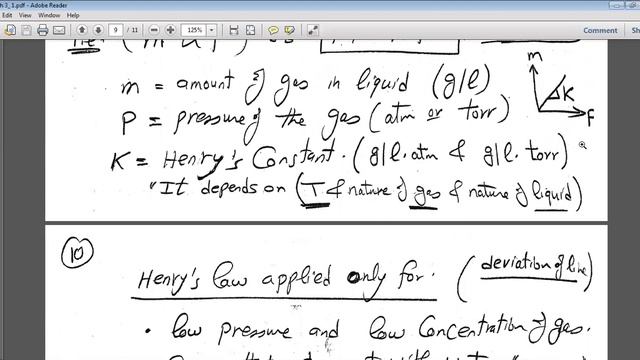 h 3_ 1.pdf - Adobe Reader
View Window Help
9 / 11
125%
m
m = amount of gas in liquid (g/l)
K
P = pressure of the gas (atm or torr)
P
K = Henry's Constant. (g/l.atm & g/l.torr)
"It depends on (T & nature of gas & nature of liquid)
10
Henry's law applied only for. (deviation of line)
• low pressure and low Concentration of gas.